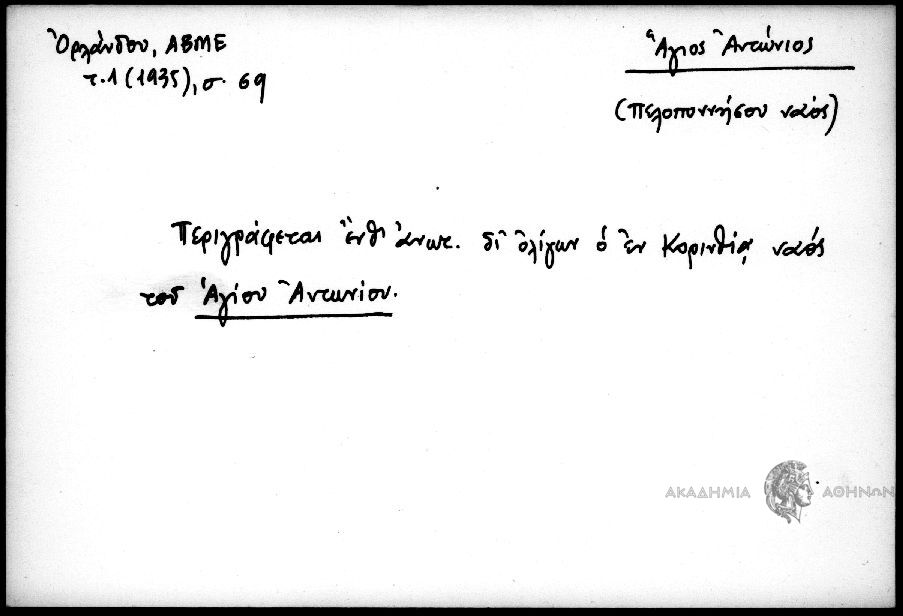 Ὀρλάνδου, ΑΒΜΕ
τ.1 (1935), σ. 69
Ἅγιος Ἀντώνιος
(Πελοποννήσου ναός)
Περιγράφεται ἔνθ' ἀνωτ. δι' ὀλίγων ὁ ἐν Κορινθίᾳ ναός
τοῦ Ἁγίου Ἀντωνίου.
ΑΚΑΔΗΜΙΑ ΑΘΗΝΩΝ